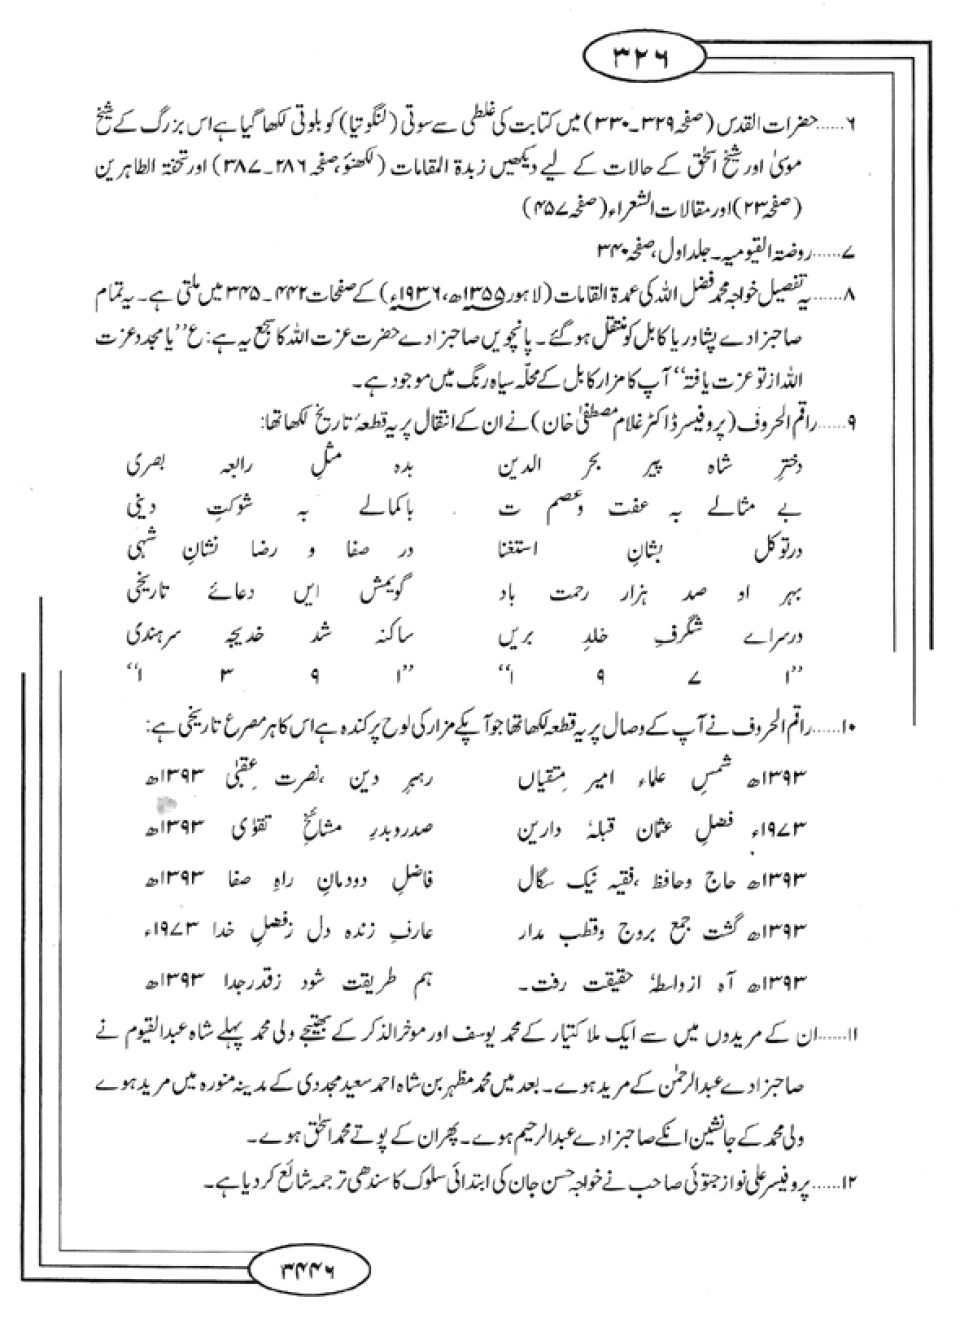 ۳۲۶
۶……حضرات القدس (صفحہ ۳۲۹۔۳۳۰) میں کتابت کی غلطی سے سوتی (لنگوتیا) کو بلوتی لکھا گیا ہے اس بزرگ کے شیخ
موسیٰ اور شیخ اسحٰق کے حالات کے لیے دیکھیں زبدۃ المقامات (لکھنؤ، صفحہ ۲۸۶۔۳۸۷) اور تحفۃ الطاہرین
(صفحہ ۲۳) اور مقالات الشعراء (صفحہ ۴۵۷)
۷……روضۃ القیومیہ۔ جلد اول، صفحہ ۳۴۰
۸……یہ تفصیل خواجہ محمد فضل اللہ کی عمدۃ المقامات (لاہور ۱۳۵۵ھ، ۱۹۳۶ء) کے صفحات ۴۴۲۔۳۴۵ میں ملتی ہے۔ یہ تمام
صاحبزادے پشاور یا کابل کو منتقل ہو گئے۔ پانچویں صاحبزادے حضرت عزت اللہ کا سجع یہ ہے: ع ’’یا مجدد عزت
اللہ از تو عزت یافتہ‘‘ آپ کا مزار کابل کے محلّہ سیاہ رنگ میں موجود ہے۔
۹……راقم الحروف (پروفیسر ڈاکٹر غلام مصطفیٰ خان) نے ان کے انتقال پر یہ قطعۂ تاریخ لکھا تھا:
دخترِ شاہ پیر بحر الدین بدہ مثلِ رابعہ بصری
بے مثالے بہ عفت و عصم ت باکمالے بہ شوکتِ دینی
در توکل بشانِ استغنا در صفا و رضا نشانِ شہی
بہر او صد ہزار رحمت باد گویمش ایں دعائے تاریخی
در سراے شگرفِ خلدِ بریں ساکنہ شد خدیجہ سرہندی
’’۱ ۷ ۹ ۱‘‘ ’’۱ ۹ ۳ ۱‘‘
۱۰……راقم الحروف نے آپ کے وصال پر یہ قطعہ لکھا تھا جو آپکے مزار کی لوح پر کندہ ہے اس کا ہر مصرع تاریخی ہے:
۱۳۹۳ھ شمسِ علماء امیر متقیاں رہبرِ دین ،نصرت عقبیٰ ۱۳۹۳ھ
۱۹۷۳ء فضلِ عثمان قبلۂ دارین صدر و بدرِ مشائخِ تقوٰی ۱۳۹۳ھ
۱۳۹۳ھ حاج و حافظ ،فقیہ نیک سگال فاضلِ دودمانِ راہِ صفا ۱۳۹۳ھ
۱۳۹۳ھ گشت جمع بروج و قطب مدار عارفِ زندہ دل ز فضلِ خدا ۱۹۷۳ء
۱۳۹۳ھ آہ از واسطۂ حقیقت رفت۔ ہم طریقت شود ز قدر جدا ۱۳۹۳ھ
۱۱……ان کے مریدوں میں سے ایک ملا کتیار کے محمد یوسف اور موخرالذکر کے بھتیجے ولی محمد پہلے شاہ عبدالقیوم نے
صاحبزادے عبدالرحمٰن کے مرید ہوے۔ بعد میں محمد مظہر بن شاہ احمد سعید مجددی کے مدینہ منورہ میں مرید ہوے
ولی محمد کے جانشین انکے صاحبزادے عبدالرحیم ہوے۔ پھر ان کے پوتے محمد اسحٰق ہوے۔
۱۲……پروفیسر علی نواز جتوئی صاحب نے خواجہ حسن جان کی ابتدائی سلوک کا سندھی ترجمہ شائع کر دیا ہے۔
۳۴۴۶